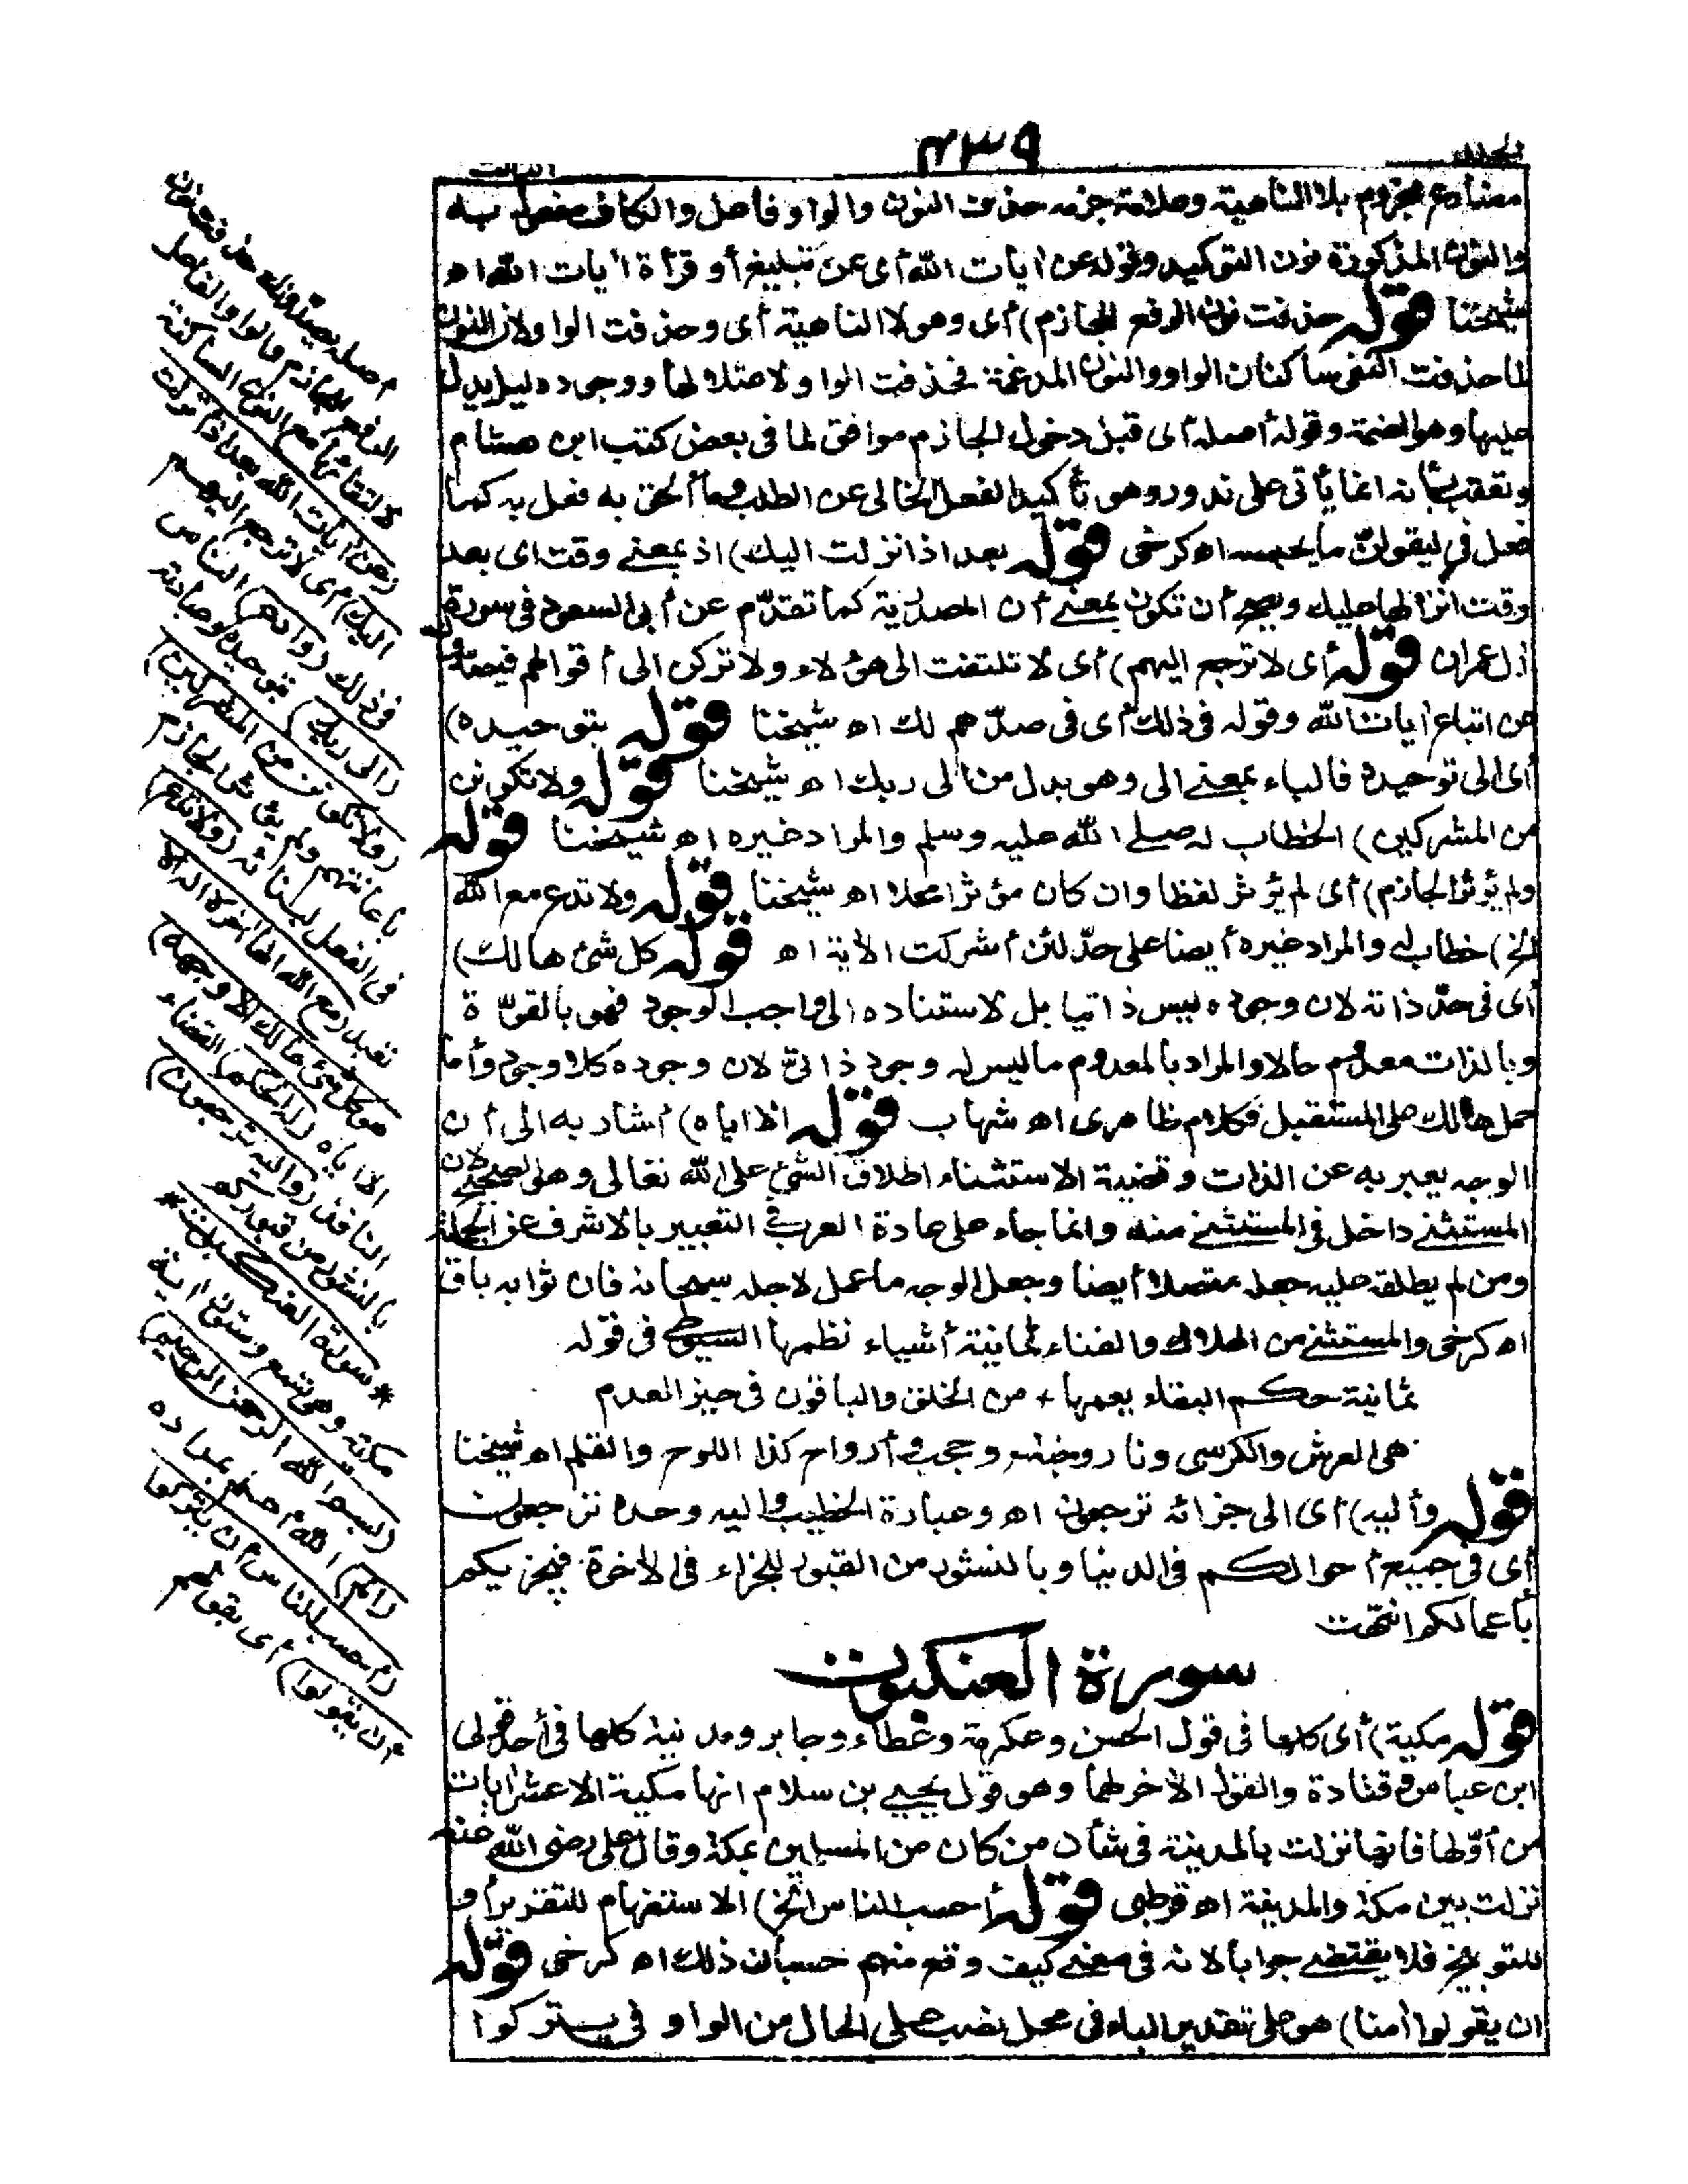 ٤٣٩
مضارع مجزوم بلا الناهية وعلامة جزمه حذف النون والواو فاعل والكاف مفعول به
والنون المذكورة نون التوكيد وقوله عن اٰيات الله أى عن تبليغ أو قرأة اٰيات الله اھ
شيخنا قوله حذفت نون الرفع للجازم) أى وهو لا الناهية أى وحذفت الواو لان النون
لما حذفت التقى ساكنان الواو والنون المدغمة فحذفت الواو لاعتلالها ووجود دليل يدل
عليها وهو الضمة وقوله أصله أى قبل دخول الجازم موافق لما فى بعض كتب ابن هشام
وتعقب بأنه انما يأتى على ندور وهو تأكيد الفعل الخالى عن الطلب وما ألحق به فعل به كما
فعل فى ليقولن ما يحبسه اھ كرخى قوله بعد اذ انزلت اليك) اذ بمعنے وقت اى بعد
وقت انزالها عليك ويصح أن تكون بمعنے أن المصدرية كما تقدّم عن أبى السعود فى سورة
اٰل عمران قوله أى لا ترجع اليهم) أى لا تلتفت الى هؤلاء ولا تركن الى أقوالهم فيصدّوك
عن اتباع اٰيات الله وقوله فى ذلك أى فى صدّهم لك اھ شيخنا قوله بتوحيده)
أى الى توحيده فالباء بمعنے الى وهو بدل من الى ربك اھ شيخنا قوله ولا تكونن
من المشركين) الخطاب له صلے الله عليه وسلم والمراد غيره اھ شيخنا قوله
ولم يؤثر الجازم) أى لم يؤثر لفظا وان كان مؤثرا محلا اھ شيخنا قوله ولا تدع مع الله
الخ) خطاب له والمراد غيره أيضا على حدّ لئن أشركت الأية اھ قوله كل شئ هالك)
أى فى حدّ ذاته لان وجوده ليس ذاتيا بل لاستناده الى واجب الوجود فهو بالقوّة
وبالذات معدوم حالا والمراد بالمعدوم ما ليس له وجود ذاتى لان وجوده كلا وجود وأما
حمل هالك على المستقبل فكلام ظاهرى اھ شهاب قوله الا اياه) أشار به الى أن
الوجه يعبر به عن الذات وقضية الاستثناء اطلاق الشئ على الله تعالى وهو الصحيح لان
المستثنے داخل فى المستثنے منه وانما جاء على عادة العرب فى التعبير بالاشرف عن الجملة
ومن لم يطلقه عليه جعله متصلا أيضا وجعل الوجه ما عمل لاجله سبحانه فان ثوابه باق
اھ كرخى والمستثنے من الهلاك والفناء ثمانية أشياء نظمها السيوطى فى قوله
ثمانية حكم البقاء يعمها + من الخلق والباقون فى حيز العدم
هى العرش والكرسى ونار وجنة وعجب وأرواح كذا اللوح والقلم اھ شيخنا
قوله وأليه) أى الى جزائه ترجعون اھ وعبارة الخطيب واليه وحده ترجعون
أى فى جميع أحوالكم فى الدنيا وبالنشور من القبور للجزاء فى الأخرة فيجزيكم
بأعمالكم انتهت
سورة العنكبوت
قوله مكية) أى كلها فى قول الحسن وعكرمة وعطاء وجابر ومدنية كلها فى أحد قولى
ابن عباس وقتادة والقول الأخر لهما وهو قول يحيے بن سلام انها مكية الا عشر اٰيات
من أوّلها فانها نزلت بالمدينة فى شأن من كان من المسلمين بمكة وقال على رضى الله عنه
نزلت بين مكة والمدينة اھ قرطبى قوله أحسب الناس الخ) الاستفهام للتقرير أو
للتوبيخ فلا يقتضے جوابا لانه فى معنے كيف وقع منهم حسبان ذلك اھ كرخى قوله
ان يقولوا اٰمنا) هو على تقدير الباء فى محل نصب على الحال من الواو فى يتركوا
أصله يصدّونك حذفت نون
الرفع للجازم والواو والفاعل
لالتقائها مع النون الساكنة
(عن اٰيات الله بعد اذ أنزلت
اليك) أى لا ترجع اليهم
فى ذلك (وادع) الناس
(الى ربك) بتوحيده وعبادته
(ولا تكونن من المشركين)
باعانتهم ولم يؤثر الجازم
فى الفعل لبنائه (ولا تدع)
تعبد (مع الله الها اٰخر لا اله الا
هو كل شئ هالك الا وجهه)
الا اياه (له الحكم) القضاء
النافذ (واليه ترجعون)
بالنشور من قبوركم
*سورة العنكبوت*
مكية وهى تسع وستون اٰية
(بسم الله الرحمٰن الرحيم)
(الم) الله أعلم بمراده
(أحسب الناس أن يتركوا
أن يقولوا) أى بقولهم